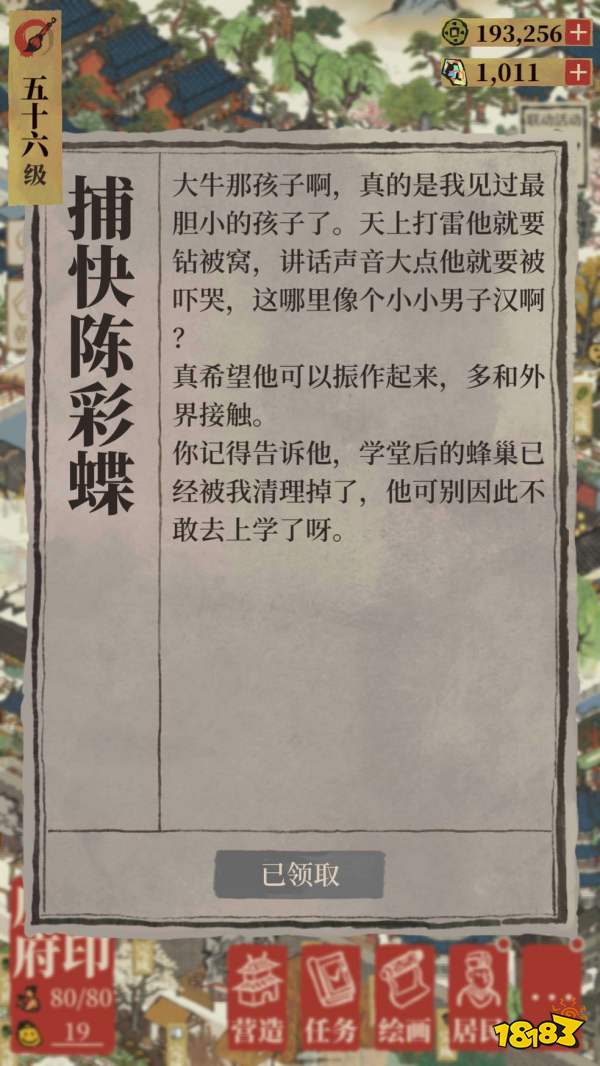 五十六级
193,256
1,011
联动活动
捕快陈彩蝶
大牛那孩子啊，真的是我见过最
胆小的孩子了。天上打雷他就要
钻被窝，讲话声音大点他就要被
吓哭，这哪里像个小小男子汉啊
？
真希望他可以振作起来，多和外
界接触。
你记得告诉他，学堂后的蜂巢已
经被我清理掉了，他可别因此不
敢去上学了呀。
已领取
府印
80/80
19
营造
任务
绘画
居民
18183